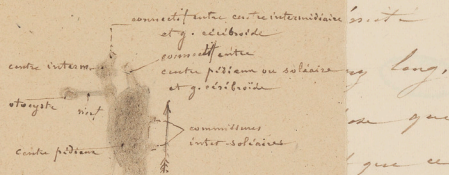 connectif entre centre intermédiaire
et g. cérébroïde
connectif entre
centre pédieux ou soléaire
et g. cérébroïde
centre interm.
otocyste
nerf
commissures
inter-soléaires
centre pédieux
long,
que
que ce